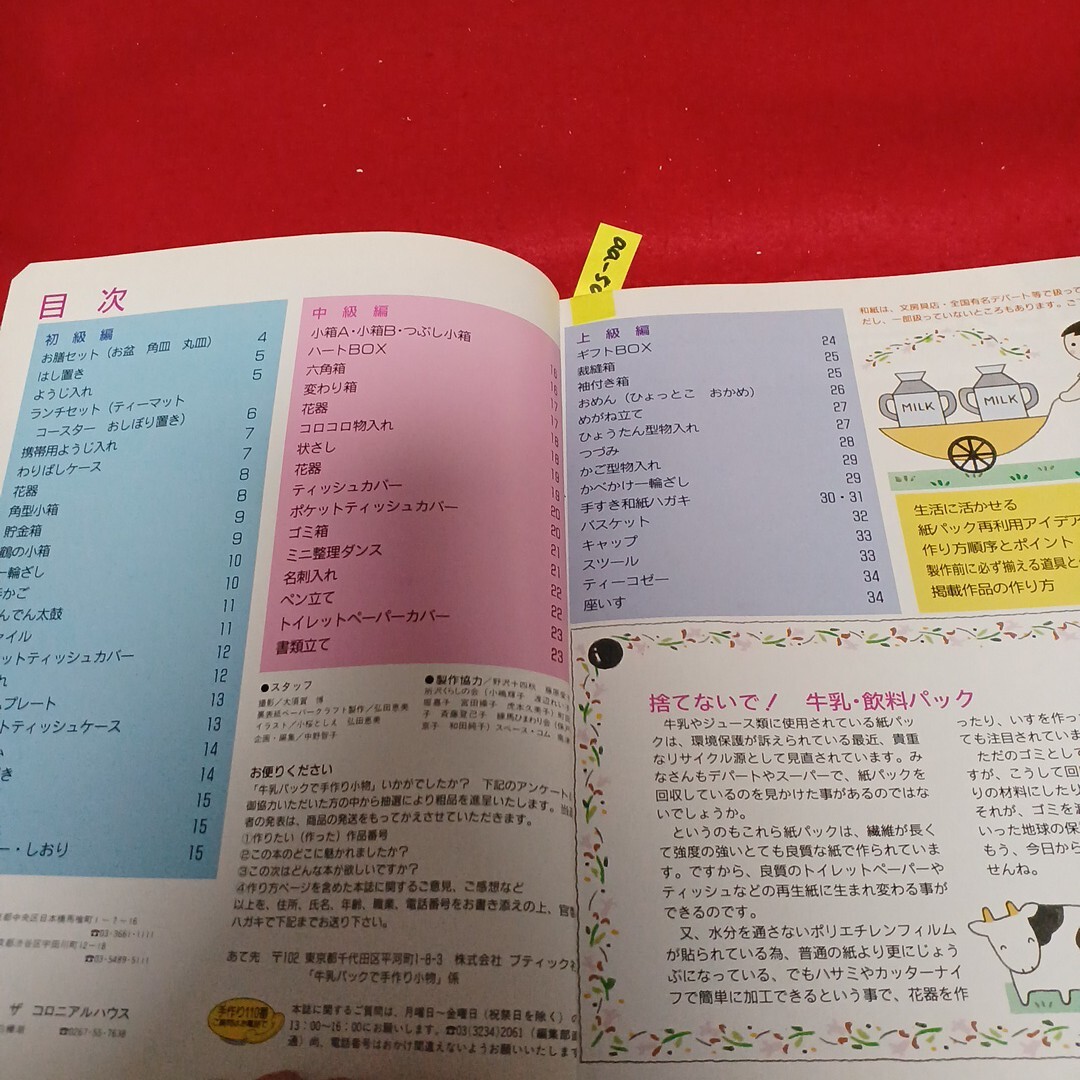 目 次
初 級 編
お膳セット（お盆 角皿 丸皿） 4
はし置き 5
ようじ入れ 5
ランチセット（ティーマット
コースター おしぼり置き） 6
携帯用ようじ入れ 7
わりばしケース 7
花器 8
角型小箱 8
貯金箱 9
鶴の小箱 9
一輪ざし 10
かご 10
んでん太鼓 11
ァイル 11
ットティッシュカバー 12
れ 12
ムプレート 13
トティッシュケース 13
ム 14
き 14
15
15
ー・しおり 15
中 級 編
小箱A・小箱B・つぶし小箱
ハートBOX
六角箱 16
変わり箱 16
花器 17
コロコロ物入れ 17
状さし 18
花器 18
ティッシュカバー 19
ポケットティッシュカバー 19
ゴミ箱 20
ミニ整理ダンス 20
名刺入れ 21
ペン立て 21
トイレットペーパーカバー 22
書類立て 22
23
23
上 級 編
ギフトBOX 24
裁縫箱 25
袖付き箱 25
おめん（ひょっとこ おかめ） 26
めがね立て 27
ひょうたん型物入れ 27
つづみ 28
かご型物入れ 29
かべかけ一輪ざし 29
手すき和紙ハガキ 30・31
バスケット 32
キャップ 33
スツール 33
ティーコゼー 34
座いす 34
aa-50
和紙は、文房具店・全国有名デパート等で扱って
だし、一部扱っていないところもあります。こ
MILK
MILK
生活に活かせる
紙パック再利用アイデア
作り方順序とポイント
製作前に必ず揃える道具と
掲載作品の作り方
●スタッフ
撮影／大須賀 博
裏表紙ペーパークラフト製作／弘田恵美
イラスト／小桜としえ 弘田恵美
企画・編集／中野智子
●製作協力／野沢十四秋
所沢くらしの会（小嶋輝子
お便りください
「牛乳パックで手作り小物」いかがでしたか？ 下記のアンケート
御協力いただいた方の中から抽選により粗品を進呈いたします。当
者の発表は、商品の発送をもってかえさせていただきます。
①作りたい（作った）作品番号
②この本のどこに魅かれましたか？
③この次はどんな本が欲しいですか？
④作り方ページを含めた本誌に関するご意見、ご感想など
以上を、住所、氏名、年齢、職業、電話番号をお書き添えの上、官製
ハガキで下記までお送り下さい。
あて先 〒102 東京都千代田区平河町1-8-3 株式会社 ブティック社
「牛乳パックで手作り小物」係
手作り110番
ご質問はお電話で！
本誌に関するご質問は、月曜日～金曜日（祝祭日を除く）の
13：00～16：00にお願いします。☎03(3234)2061（編集部直
通）尚、電話番号はおかけ間違えないようお願いいたします
京都中央区日本橋馬喰町1-7-16
☎03-3661-1111
京都渋谷区宇田川町12-18
☎03-5489-5111
ザ コロニアルハウス
☎0267-50-7638
捨てないで！ 牛乳・飲料パック
牛乳やジュース類に使用されている紙パッ
クは、環境保護が訴えられている最近、貴重
なリサイクル源として見直されています。み
なさんもデパートやスーパーで、紙パックを
回収しているのを見かけた事があるのではな
いでしょうか。
というのもこれら紙パックは、繊維が長く
て強度の強いとても良質な紙で作られていま
す。ですから、良質のトイレットペーパーや
ティッシュなどの再生紙に生まれ変わる事が
できるのです。
又、水分を通さないポリエチレンフィルム
が貼られている為、普通の紙より更にじょう
ぶになっている、でもハサミやカッターナイ
フで簡単に加工できるという事で、花器を作
ったり、いすを作っ
ても注目されていま
ただのゴミとして
すが、こうして回
りの材料にしたり
それが、ゴミを減
いった地球の保
もう、今日から
せんね。